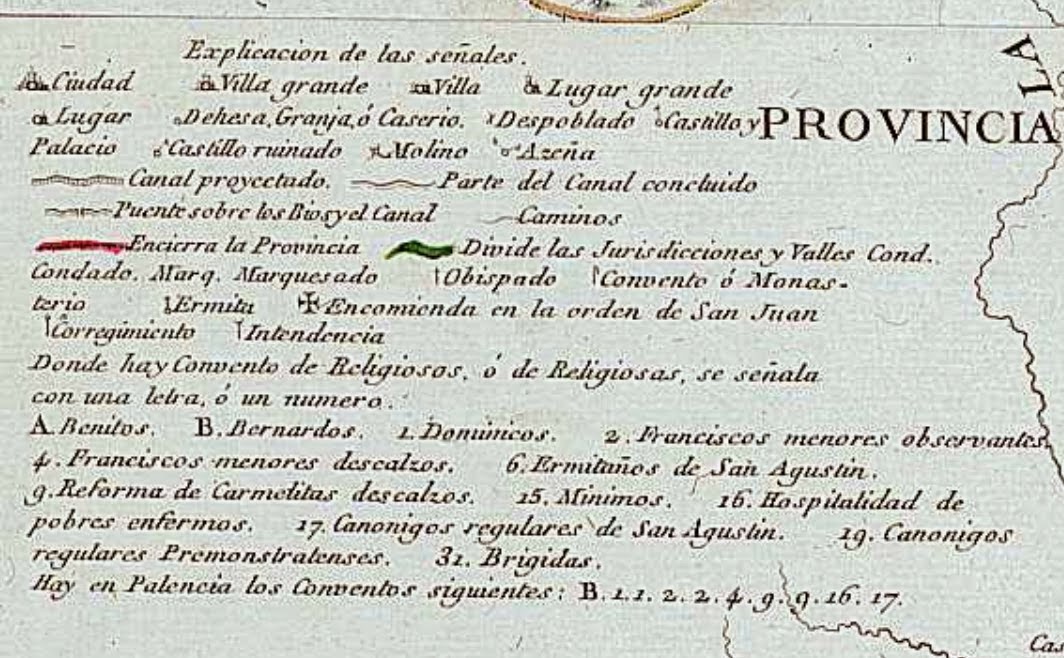 Explicacion de las señales.
Ciudad Villa grande Villa Lugar grande
Lugar Dehesa, Granja, ó Caserio. Despoblado Castillo, y
Palacio Castillo ruinado Molino Azeña
Canal proyectado. Parte del Canal concluido
Puente sobre los Rios y el Canal Caminos
Encierra la Provincia Divide las Jurisdicciones y Valles Cond.
Condado. Marq. Marquesado Obispado Convento ó Monas-
terio Ermita Encomienda en la orden de San Juan
Corregimiento Intendencia
Donde hay Convento de Religiosos, ó de Religiosas, se señala
con una letra, ó un numero.
A. Benitos. B. Bernardos. 1. Dominicos. 2. Franciscos menores observantes.
4. Franciscos menores descalzos. 6. Ermitaños de San Agustin.
9. Reforma de Carmelitas descalzos. 15. Minimos. 16. Hospitalidad de
pobres enfermos. 17. Canonigos regulares de San Agustin. 19. Canonigos
regulares Premonstratenses. 31. Brigidas.
Hay en Palencia los Conventos siguientes: B. 1. 1. 2. 2. 4. 9. 9. 16. 17.
LA
PROVINCIA